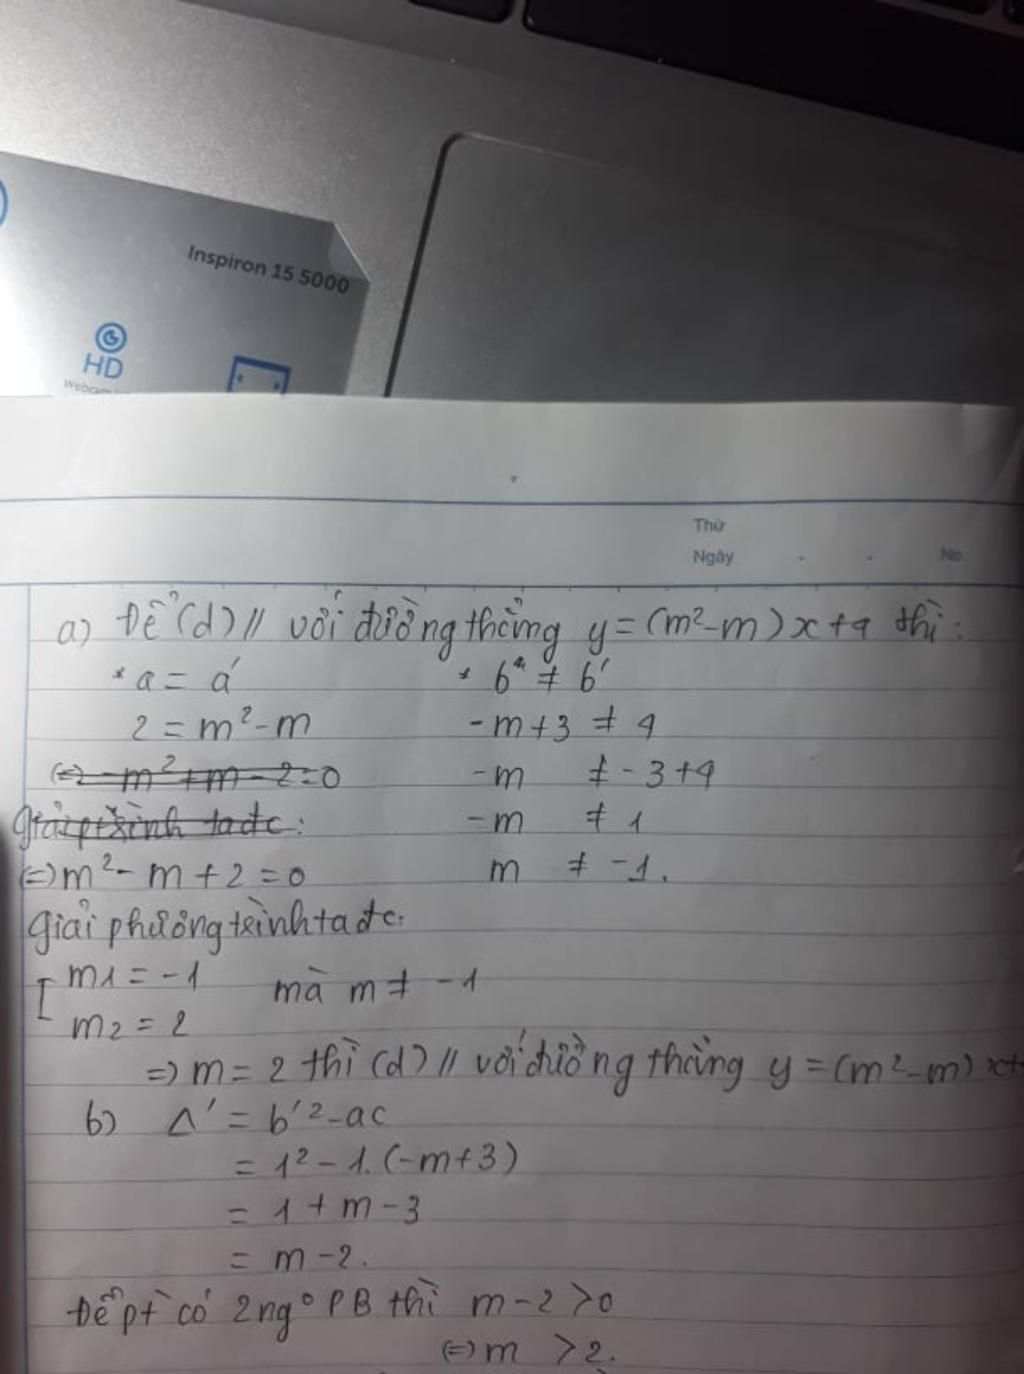 Inspiron 15 5000
HD
Webcam
Thứ
Ngày . . No.
a) Để (d) // với đường thẳng y = (m²-m)x+4 thì:
* a = a' * b ≠ b'
2 = m²-m -m+3 ≠ 4
(=) -m²+m-2=0 -m ≠ -3+4
Giải pt trình ta đc: -m ≠ 1
(=) m² - m + 2 = 0 m ≠ -1.
Giải phương trình ta đc:
[ m1 = -1 mà m ≠ -1
m2 = 2
=) m = 2 thì (d) // với đường thẳng y = (m²-m) x+
b) Δ' = b'²-ac
= 1² - 1.(-m+3)
= 1 + m - 3
= m - 2.
Để pt có 2 ng° PB thì m-2 >0
(=) m > 2.